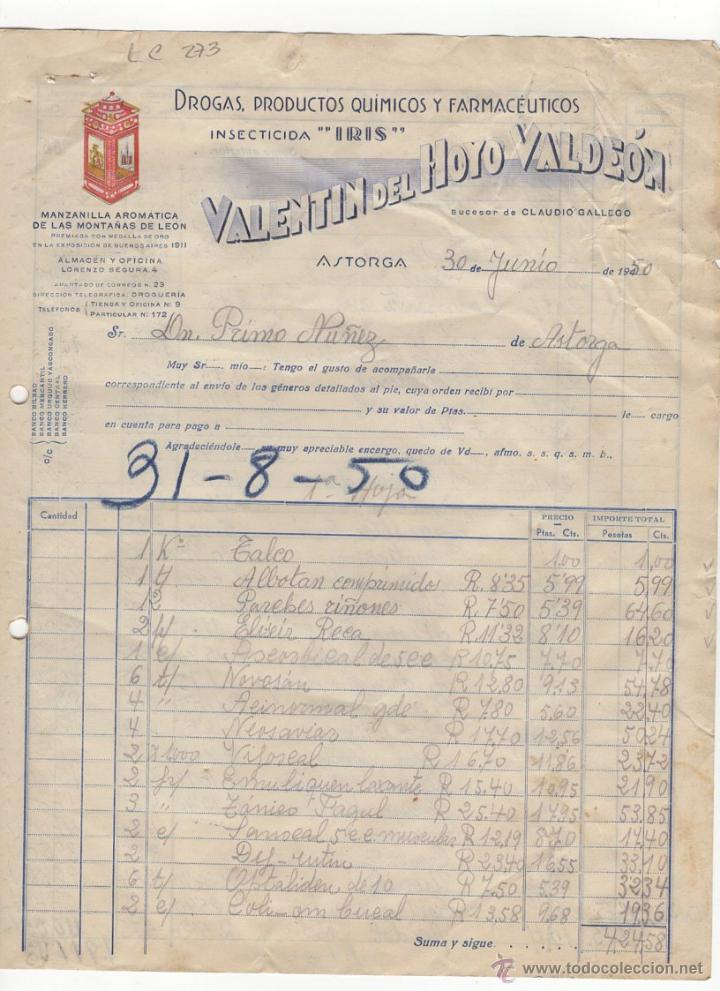 LC 273
DROGAS, PRODUCTOS QUÍMICOS Y FARMACÉUTICOS
INSECTICIDA ""IRIS""
VALENTIN DEL HOYO VALDEÓN
sucesor de CLAUDIO GALLEGO
MANZANILLA AROMÁTICA
DE LAS MONTAÑAS DE LEÓN
PREMIADA CON MEDALLA DE ORO
EN LA EXPOSICIÓN DE BUENOS AIRES 1911
ALMACÉN Y OFICINA
LORENZO SEGURA, 4
APARTADO DE CORREOS N. 23
DIRECCIÓN TELEGRÁFICA: DROGUERÍA
TELÉFONOS { TIENDA Y OFICINA Nº 9
PARTICULAR Nº 172
ASTORGA 30 de Junio de 1950
Sr. Dn. Primo Nuñez de Astorga
Muy Sr. mio: Tengo el gusto de acompañarle
correspondiente al envío de los géneros detallados al pie, cuya orden recibí por
y su valor de Ptas. le cargo
en cuenta para pago a
Agradeciéndole su muy apreciable encargo, quedo de Vd., afmo. s. s. q. s. m. b.,
c/c
BANCO BILBAO
BANCO MERCANTIL
BANCO URQUIJO VASCONGADO
BANCO CENTRAL
BANCO HERRERO
31-8-50
1ª Hoja
Cantidad PRECIO IMPORTE TOTAL
Ptas. Cts. Pesetas Cts.
1 Kº Talco 1,00 1,00
1 t/ Albotan comprimidos R. 8'35 5'99 5,99
12 riñones R. 7'50 5'39 64,60
2 f/ Elixir Reca R 11'33 8'10 16,20
1 c/ de 5 c c R 10,75 7.70 7.70
6 t/ Novosán R 12,80 9,13 54,78
4 " gde R 7,80 5,60 22,40
4 R 17,40 12,56 50,24
2 R 16,70 11,86 23,72
2 fr/ laxante R 15.40 10,95 21,90
3 " Tónico R 25.40 17,95 53.85
2 c/ 5 c.c. R 12,19 8,70 17,40
2 R 23,40 16,55 33,10
6 t/ Optalidon de 10 R 7,50 5,39 32,34
2 c/ R 13,58 9,68 19,36
Suma y sigue 424,58
www.todocoleccion.net